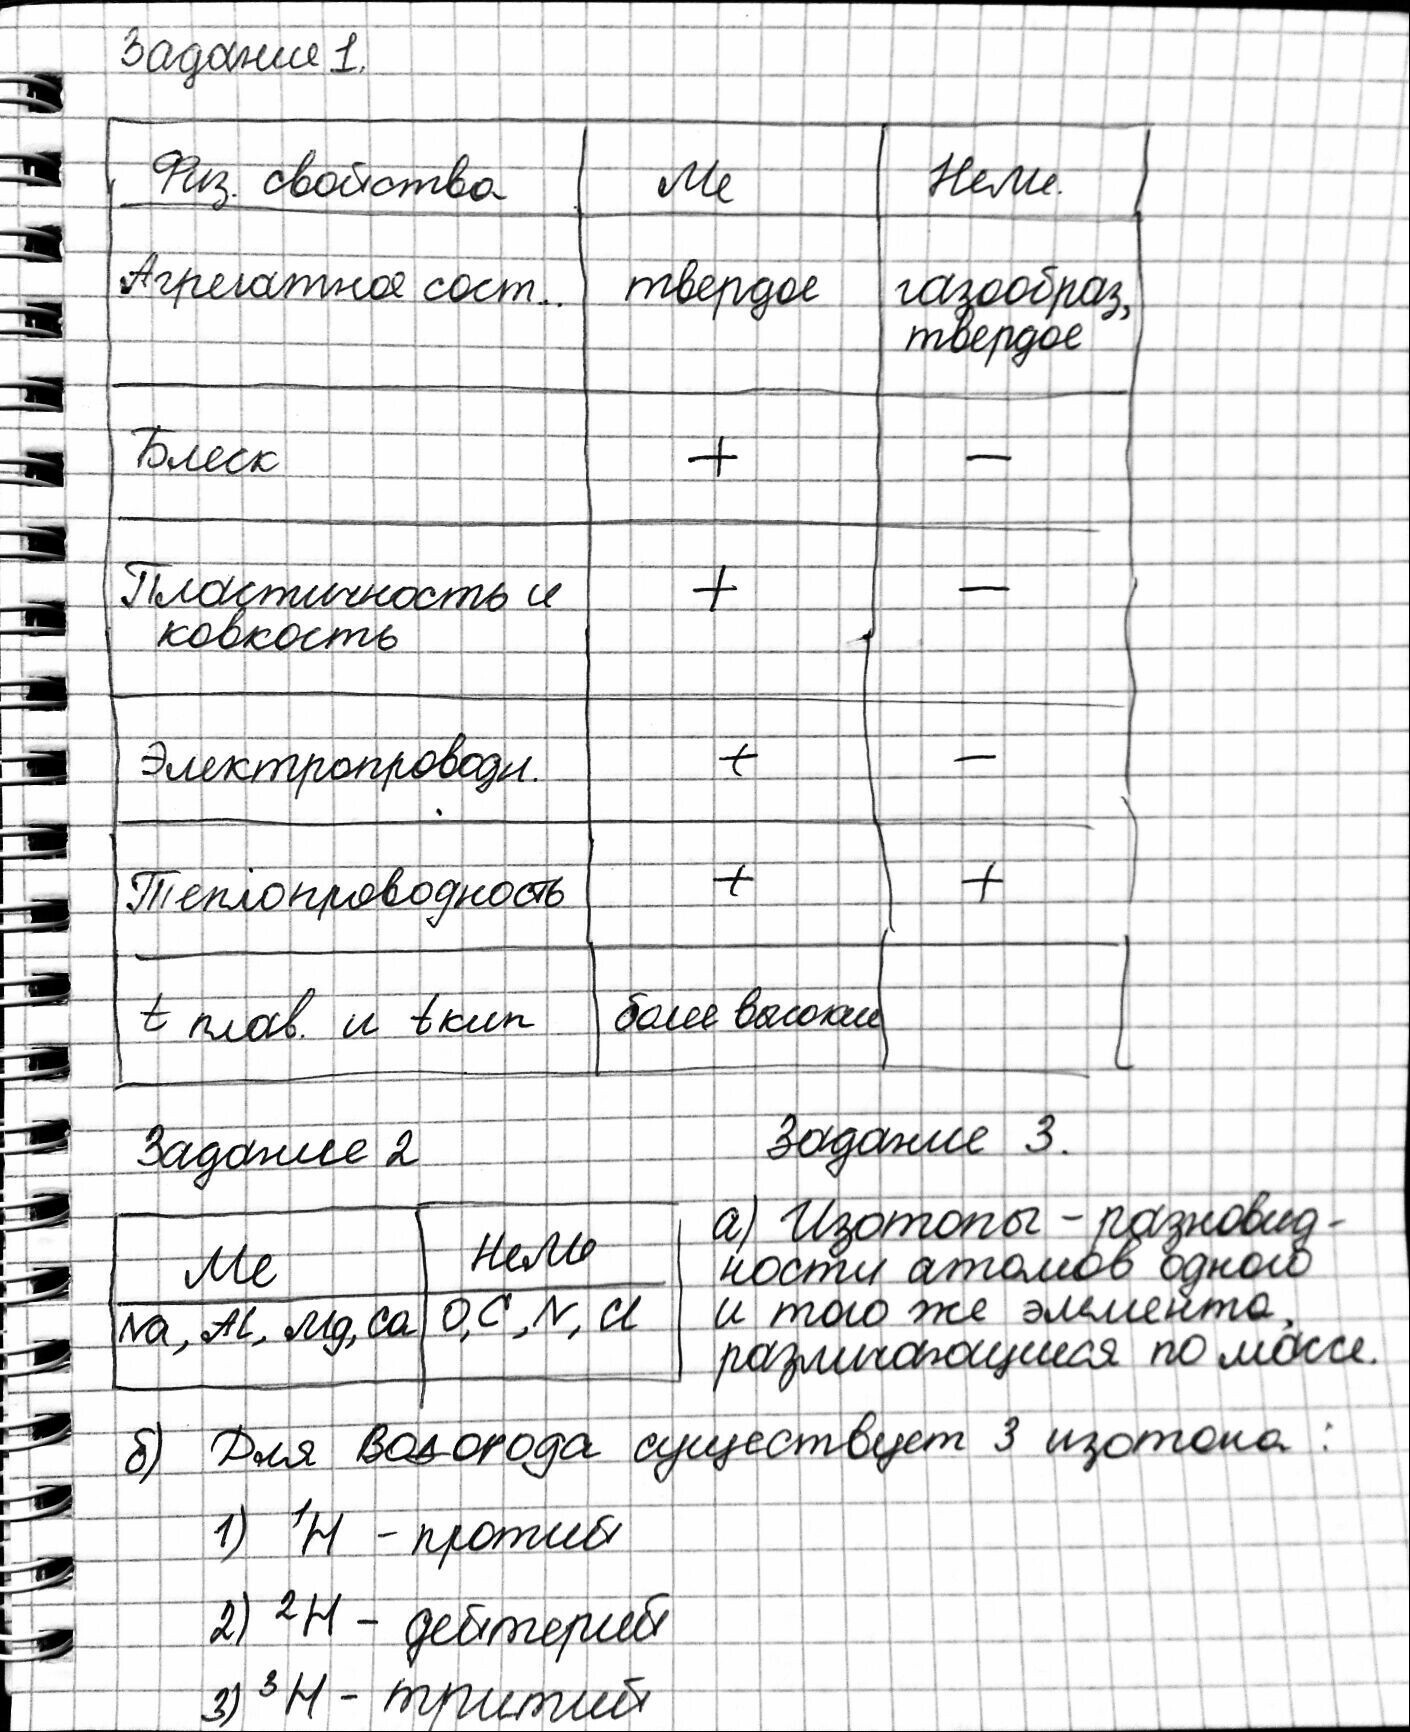 Задание 1.
Физ. свойства Ме НеМе.
Агрегатное сост... твердое газообраз,
твердое
Блеск + −
Пластичность и + −
ковкость
Электропроводн. + −
Теплопроводность + +
t плав. и t кип более высокие
Задание 2
Ме НеМе
Na, Al, Mg, Ca O, C, N, Cl
Задание 3.
а) Изотопы - разновид-
ности атомов одного
и того же элемента,
различающиеся по массе.
б) Для водорода существует 3 изотопа :
1) ¹H - протий
2) ²H - дейтерий
3) ³H - тритий